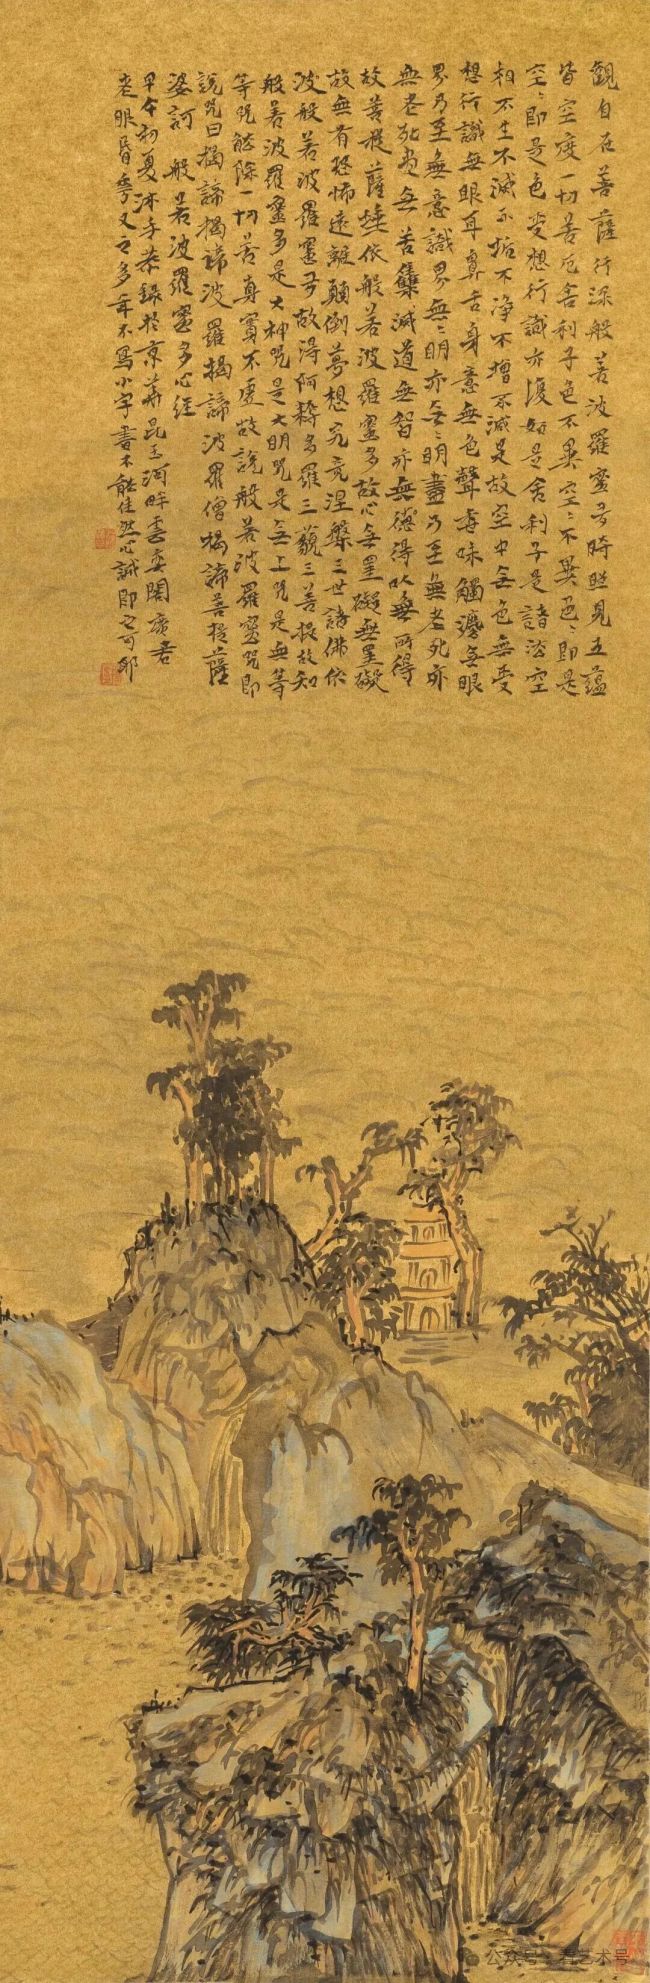 觀自在菩薩行深般若波羅蜜多時照見五蘊
皆空度一切苦厄舍利子色不異空〻不異色〻即是
空〻即是色受想行識亦復如是舍利子是諸法空
相不生不滅不垢不淨不增不減是故空中無色無受
想行識無眼耳鼻舌身意無色聲香味觸法無眼
界乃至無意識界無〻明亦無〻明盡乃至無老死亦
無老死盡無苦集滅道無智亦無德得以無所得
故菩提薩埵依般若波羅蜜多故心無罣礙無罣礙
故無有恐怖遠離顛倒夢想究竟涅槃三世諸佛依
波般若波羅蜜多故得阿耨多羅三藐三菩提故知
般若波羅蜜多是大神咒是大明咒是無上咒是無等
等咒能除一切苦真實不虛故說般若波羅蜜咒即
說咒曰揭諦揭諦波羅揭諦波羅僧揭諦菩提薩
婆訶 般若波羅蜜多心經
甲午初夏沐手恭錄於京華昆玉河畔雲奕閣 廣君
老眼昏花又之多年不寫小字書不能佳然心誠即可耶
公众号 艺术号